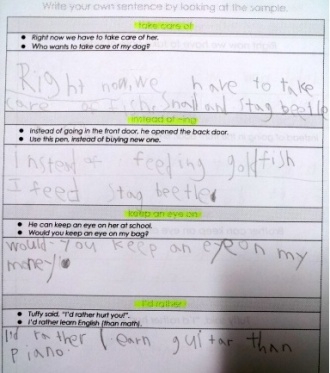 Write your own sentence by looking at the sample.
take care of
Right now we have to take care of her.
Who wants to take care of my dog?
Right now, we have to take
care of fish, snail and stag beetle
instead of -ing
Instead of going in the front door, he opened the back door.
Use this pen, instead of buying new one.
Instead of feeding goldfish
I feed stag beetle.
keep an eye on
He can keep an eye on her at school.
Would you keep an eye on my bag?
would you keep an eye on my
money
I'd rather
Tuffy said, "I'd rather hurt you!".
I'd rather learn English (than math).
I'd rather learn guitar than
piano.